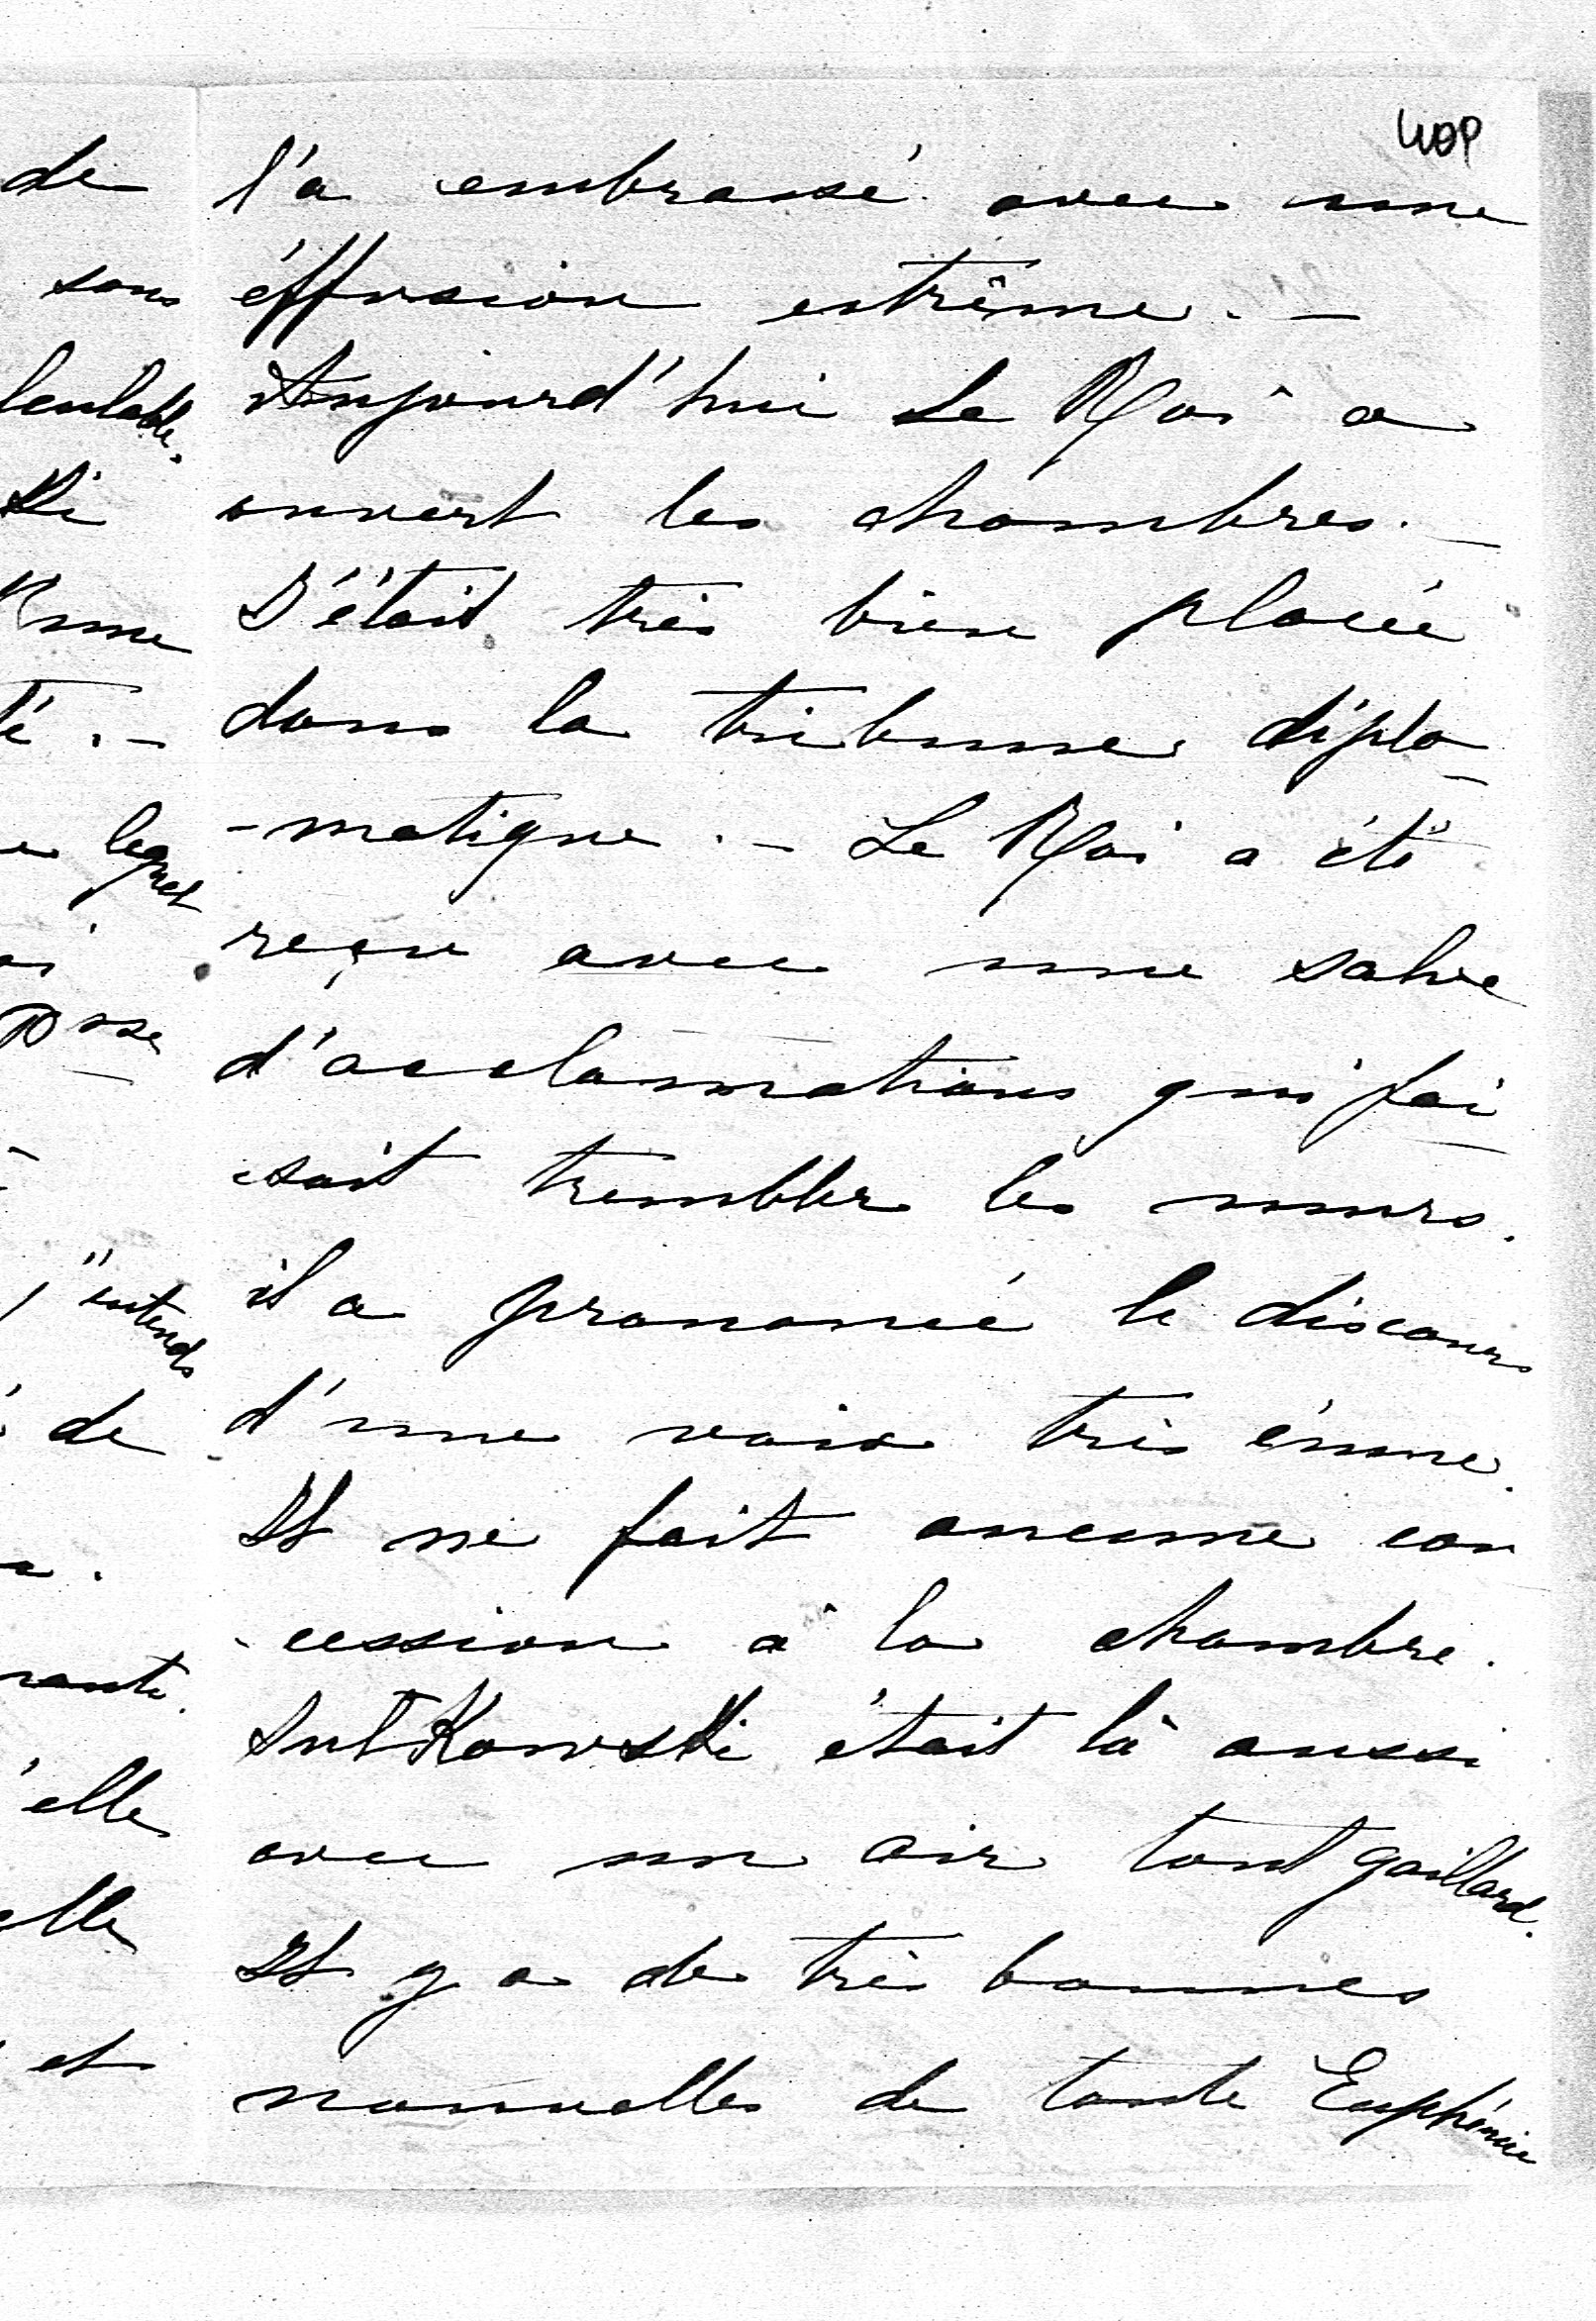 WOP
l'a embrassé avec une
éffusion extrême. —
Aujourd'hui Le Roi a
ouvert les chambres. —
J'était très bien placée
dans la tribune diplo-
-matique. — Le Roi a été
reçu avec une salve
d'acclamations qui fai-
sait trembler les murs.
il a prononcé le discours
d'une voix très émue.
Il ne fait aucune con
-cession à la chambre.
Sulkowski était là aussi
avec un air tout gaillard.
Il y a de très bonnes
nouvelles de tante Euphémie
de
sous
Ki
une
té. —
lequel
sse
j'entends
de
'elle
elle
et